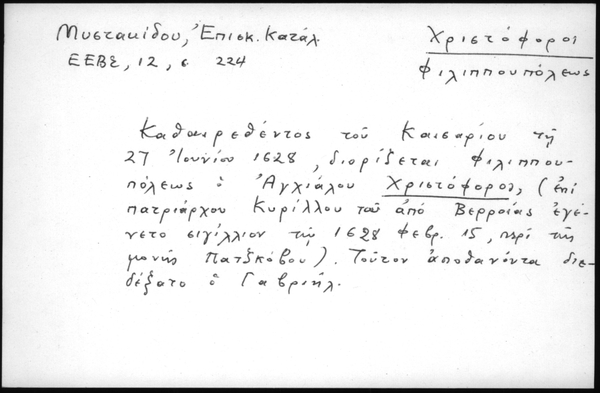 Μυστακίδου, Ἐπισκ. Κατάλ.
ΕΕΒΣ, 12, σ. 224
Χριστόφορος
Φιλιππουπόλεως
Καθαιρεθέντος τοῦ Καισαρίου τῇ
27 Ἰουνίου 1628, διορίζεται Φιλιππου-
πόλεως ὁ Ἀγχιάλου Χριστόφορος, (ἐπὶ
πατριάρχου Κυρίλλου τοῦ ἀπὸ Βερροίας ἐγέ-
νετο σιγίλλιον τῇ 1628 Φεβρ. 15, περὶ τῆς
μονῆς Πατζκόβου). Τοῦτον ἀποθανόντα διε-
δέξατο ὁ Γαβριήλ.